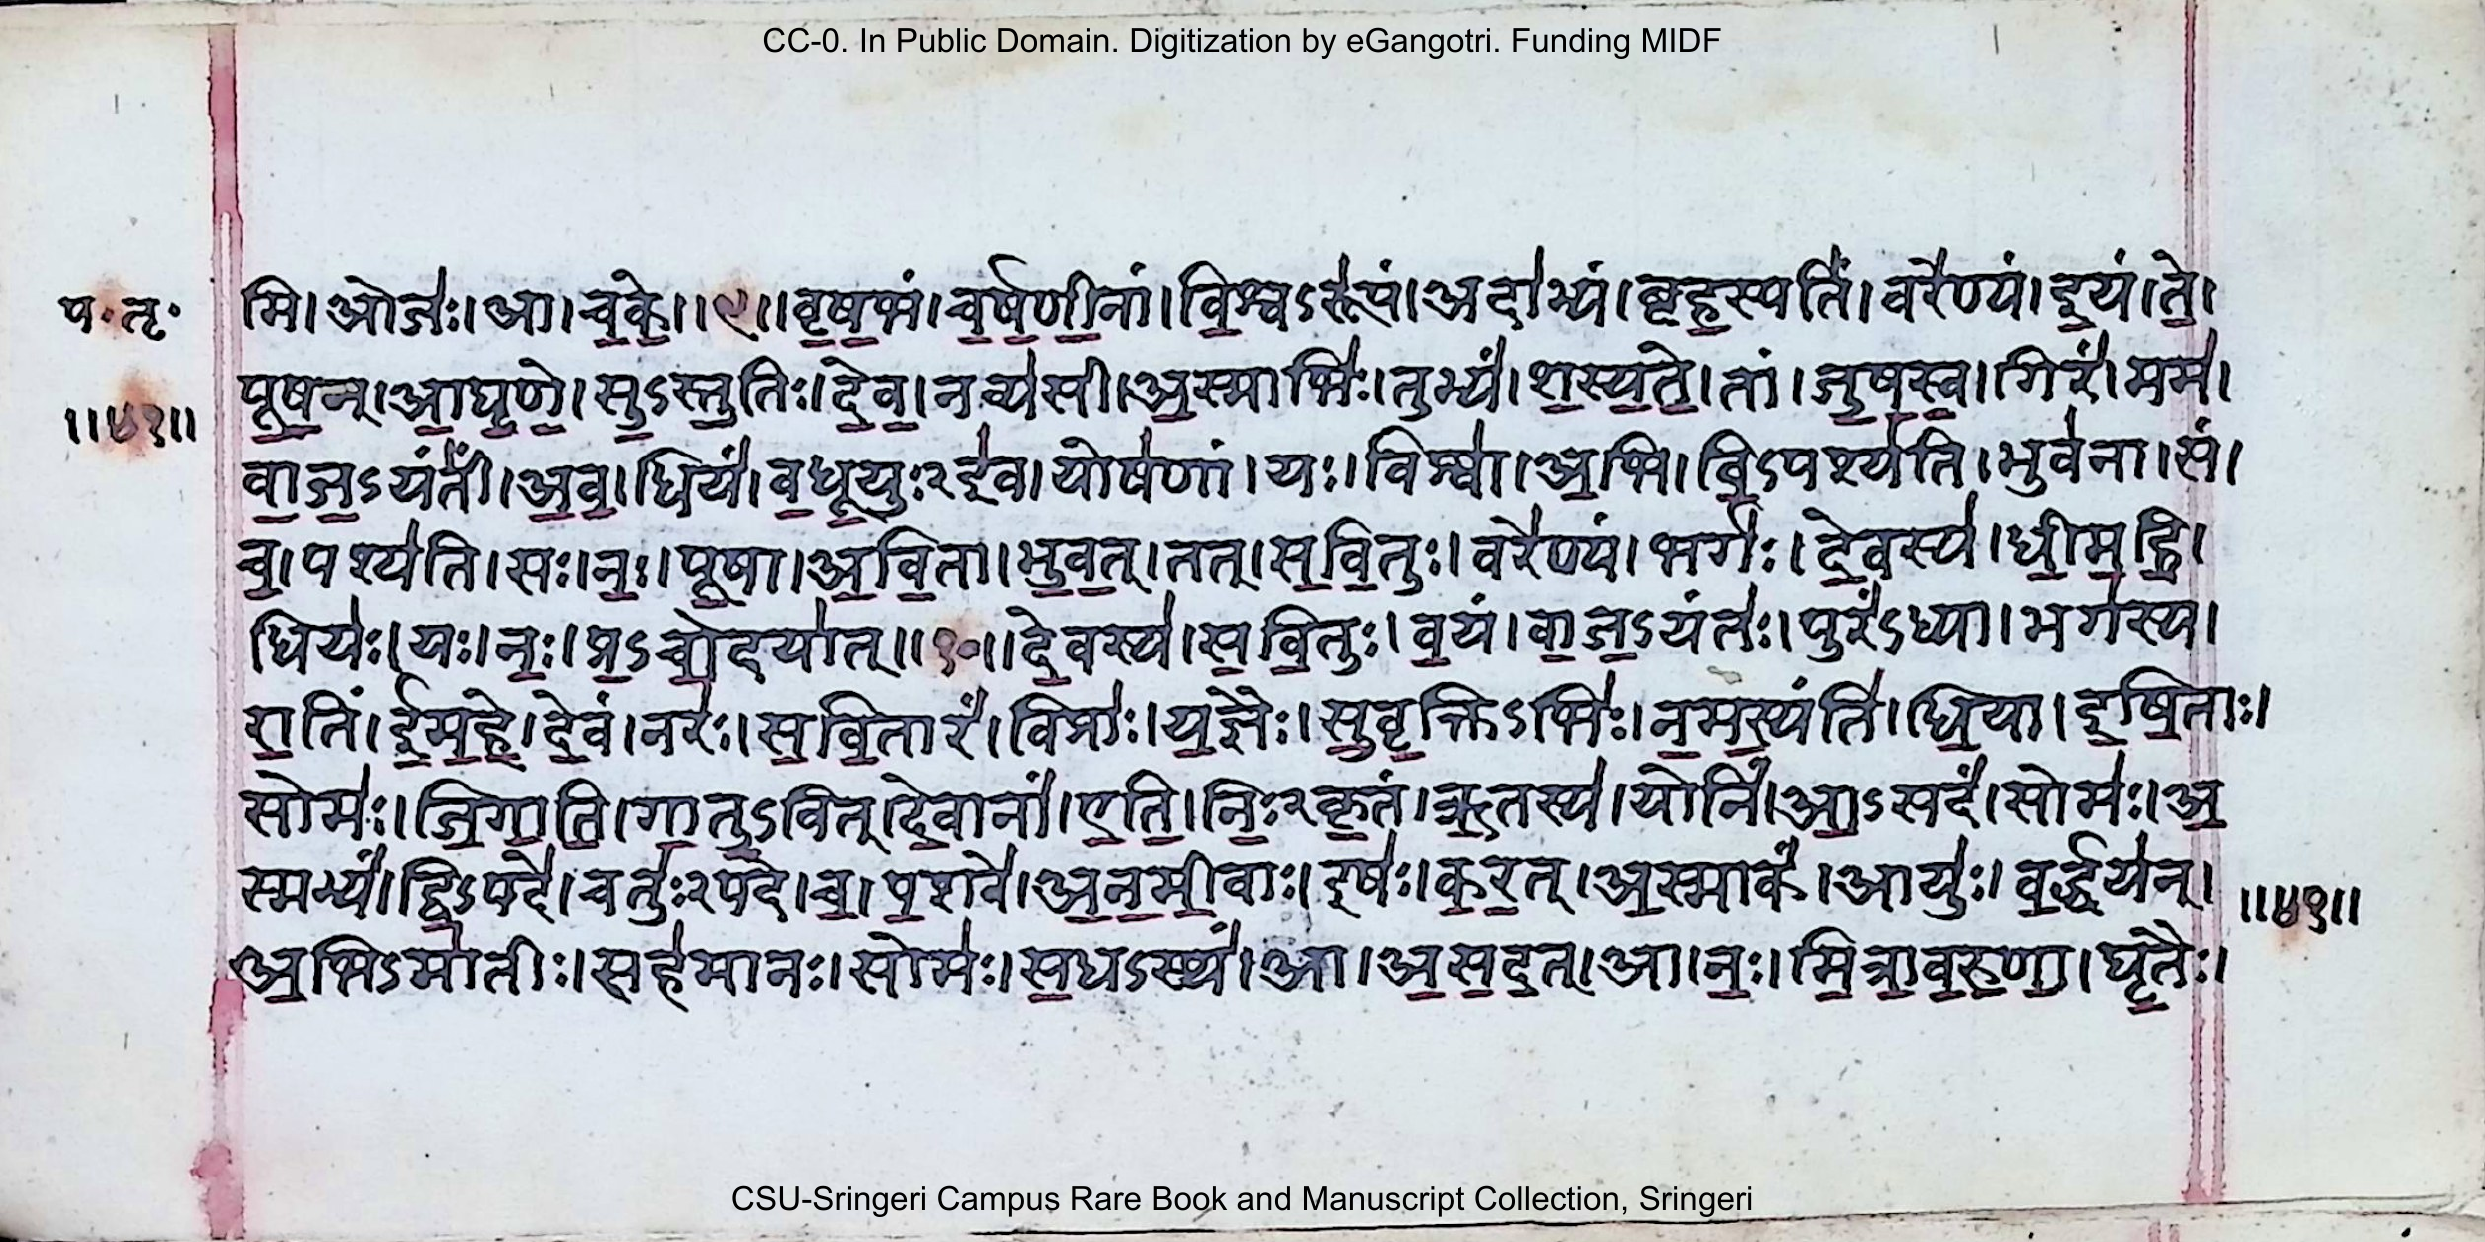 CC-0. In Public Domain. Digitization by eGangotri. Funding MIDF
प॰तृ॰ मि। ओज॑ः। आ। च॒के॒॥ ९॥ वृ॒ष॒भं। च॒र्ष॒णी॒नां। वि॒श्वऽरू॑पं। अदा॑भ्यं। बृह॒स्पतिं॑। वरे॑ण्यं। इ॒यं। ते॒।
पू॒ष॒न्। आ॒घृ॒णे॒। सु॒ऽस्तु॒तिः। दे॒व॒। नव्य॑सी। अ॒स्माभिः॑। तुभ्यं॑। श॒स्य॒ते॒। तां। जु॒ष॒स्व॒। गिरं॑। मम॑।
॥४१॥ वा॒ज॒ऽयंतीं॑। अ॒व॒। धियं॑। व॒धू॒युःऽइ॑व। योष॑णां। यः। विश्वा॑। अ॒भि। वि॒ऽपश्य॑ति। भुव॑ना। सं।
च॒। पश्य॑ति। सः। नः॒। पू॒षा। अ॒वि॒ता। भु॒व॒त्। तत्। स॒वि॒तुः। वरे॑ण्यं। भर्गः॑। दे॒वस्य॑। धी॒म॒हि॒।
धियः॑। यः। नः॒। प्र॒ऽचो॒दया॑त्॥ १०॥ दे॒वस्य॑। स॒वि॒तुः। व॒यं। वा॒ज॒ऽयंतः॑। पुरं॑ऽध्या। भग॑स्य।
रा॒तिं। ई॒म॒हे॒। दे॒वं। नरः॑। स॒वि॒तारं॑। विप्राः॑। य॒ज्ञैः। सु॒वृ॒क्तिऽभिः॑। न॒म॒स्यंति॑। धि॒या। इ॒षि॒ताः।
सोमः॑। जि॒गा॒ति॒। गा॒तु॒ऽवित्। दे॒वानां॑। ए॒ति॒। निः॒ऽकृ॒तं। ऋ॒तस्य॑। योनिं॑। आ॒ऽसदं॑। सोमः॑। अ॒
स्मभ्यं॑। द्वि॒ऽपदे॑। चतुः॑ऽपदे। च॒। प॒शवे॑। अ॒न॒मी॒वाः। इषः॑। क॒र॒त्। अ॒स्माकं॑। आयुः॑। व॒र्द्धय॑न्। ॥४१॥
अ॒भिऽमा॑तीः। सह॑मानः। सोमः॑। स॒धऽस्थं॑। आ। अ॒स॒द॒त्। आ। नः॒। मि॒त्रा॒व॒रु॒णा॒। घृ॒तैः।
CSU-Sringeri Campus Rare Book and Manuscript Collection, Sringeri